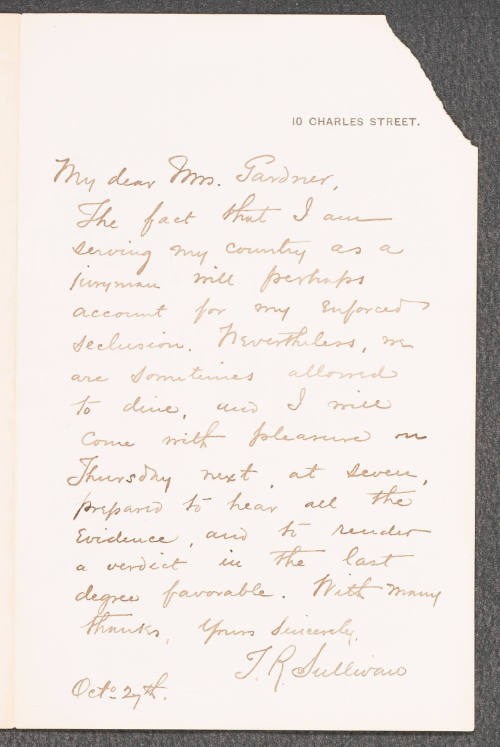 10 CHARLES STREET.
My dear Mrs. Gardner,
The fact that I am
serving my country as a
juryman will perhaps
account for my enforced
seclusion. Nevertheless, we
are sometimes allowed
to dine, and I will
come with pleasure on
Thursday next, at seven,
prepared to hear all the
evidence, and to render
a verdict in the last
degree favorable. With many
thanks, Yours sincerely,
T. R. Sullivan
Octo 27th.